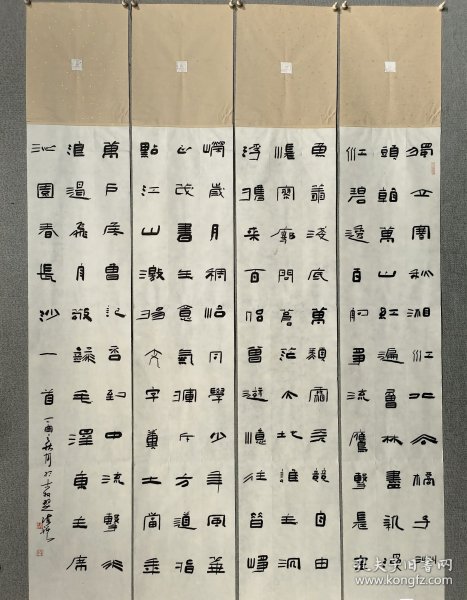 獨立寒秋湘江北去橘子洲
頭看萬山紅遍層林盡染漫
江碧透百舸爭流鷹擊長空
魚翔淺底萬類霜天競自由
悵寥廓問蒼茫大地誰主沉
浮攜來百侶曾遊憶往昔崢
嶸歲月稠恰同學少年風華
正茂書生意氣揮斥方遒指
點江山激揚文字糞土當年
萬戶侯曾記否到中流擊水
浪遏飛舟敬錄毛澤東主席
沁園春長沙一首
丁酉之秋月於
孔夫子旧书网
www.kongfz.com